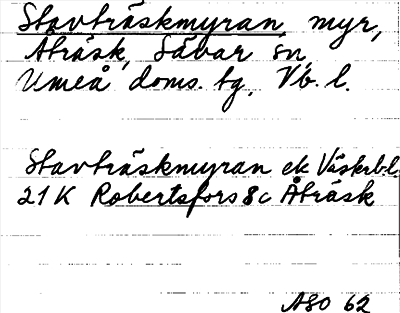 Stavträskmyran, myr,
Åträsk, Sävar sn,
Umeå doms. tg, Vb. l.
Stavträskmyran ek Västerb.l.
21 K Robertsfors 8c Åträsk
ASO 62